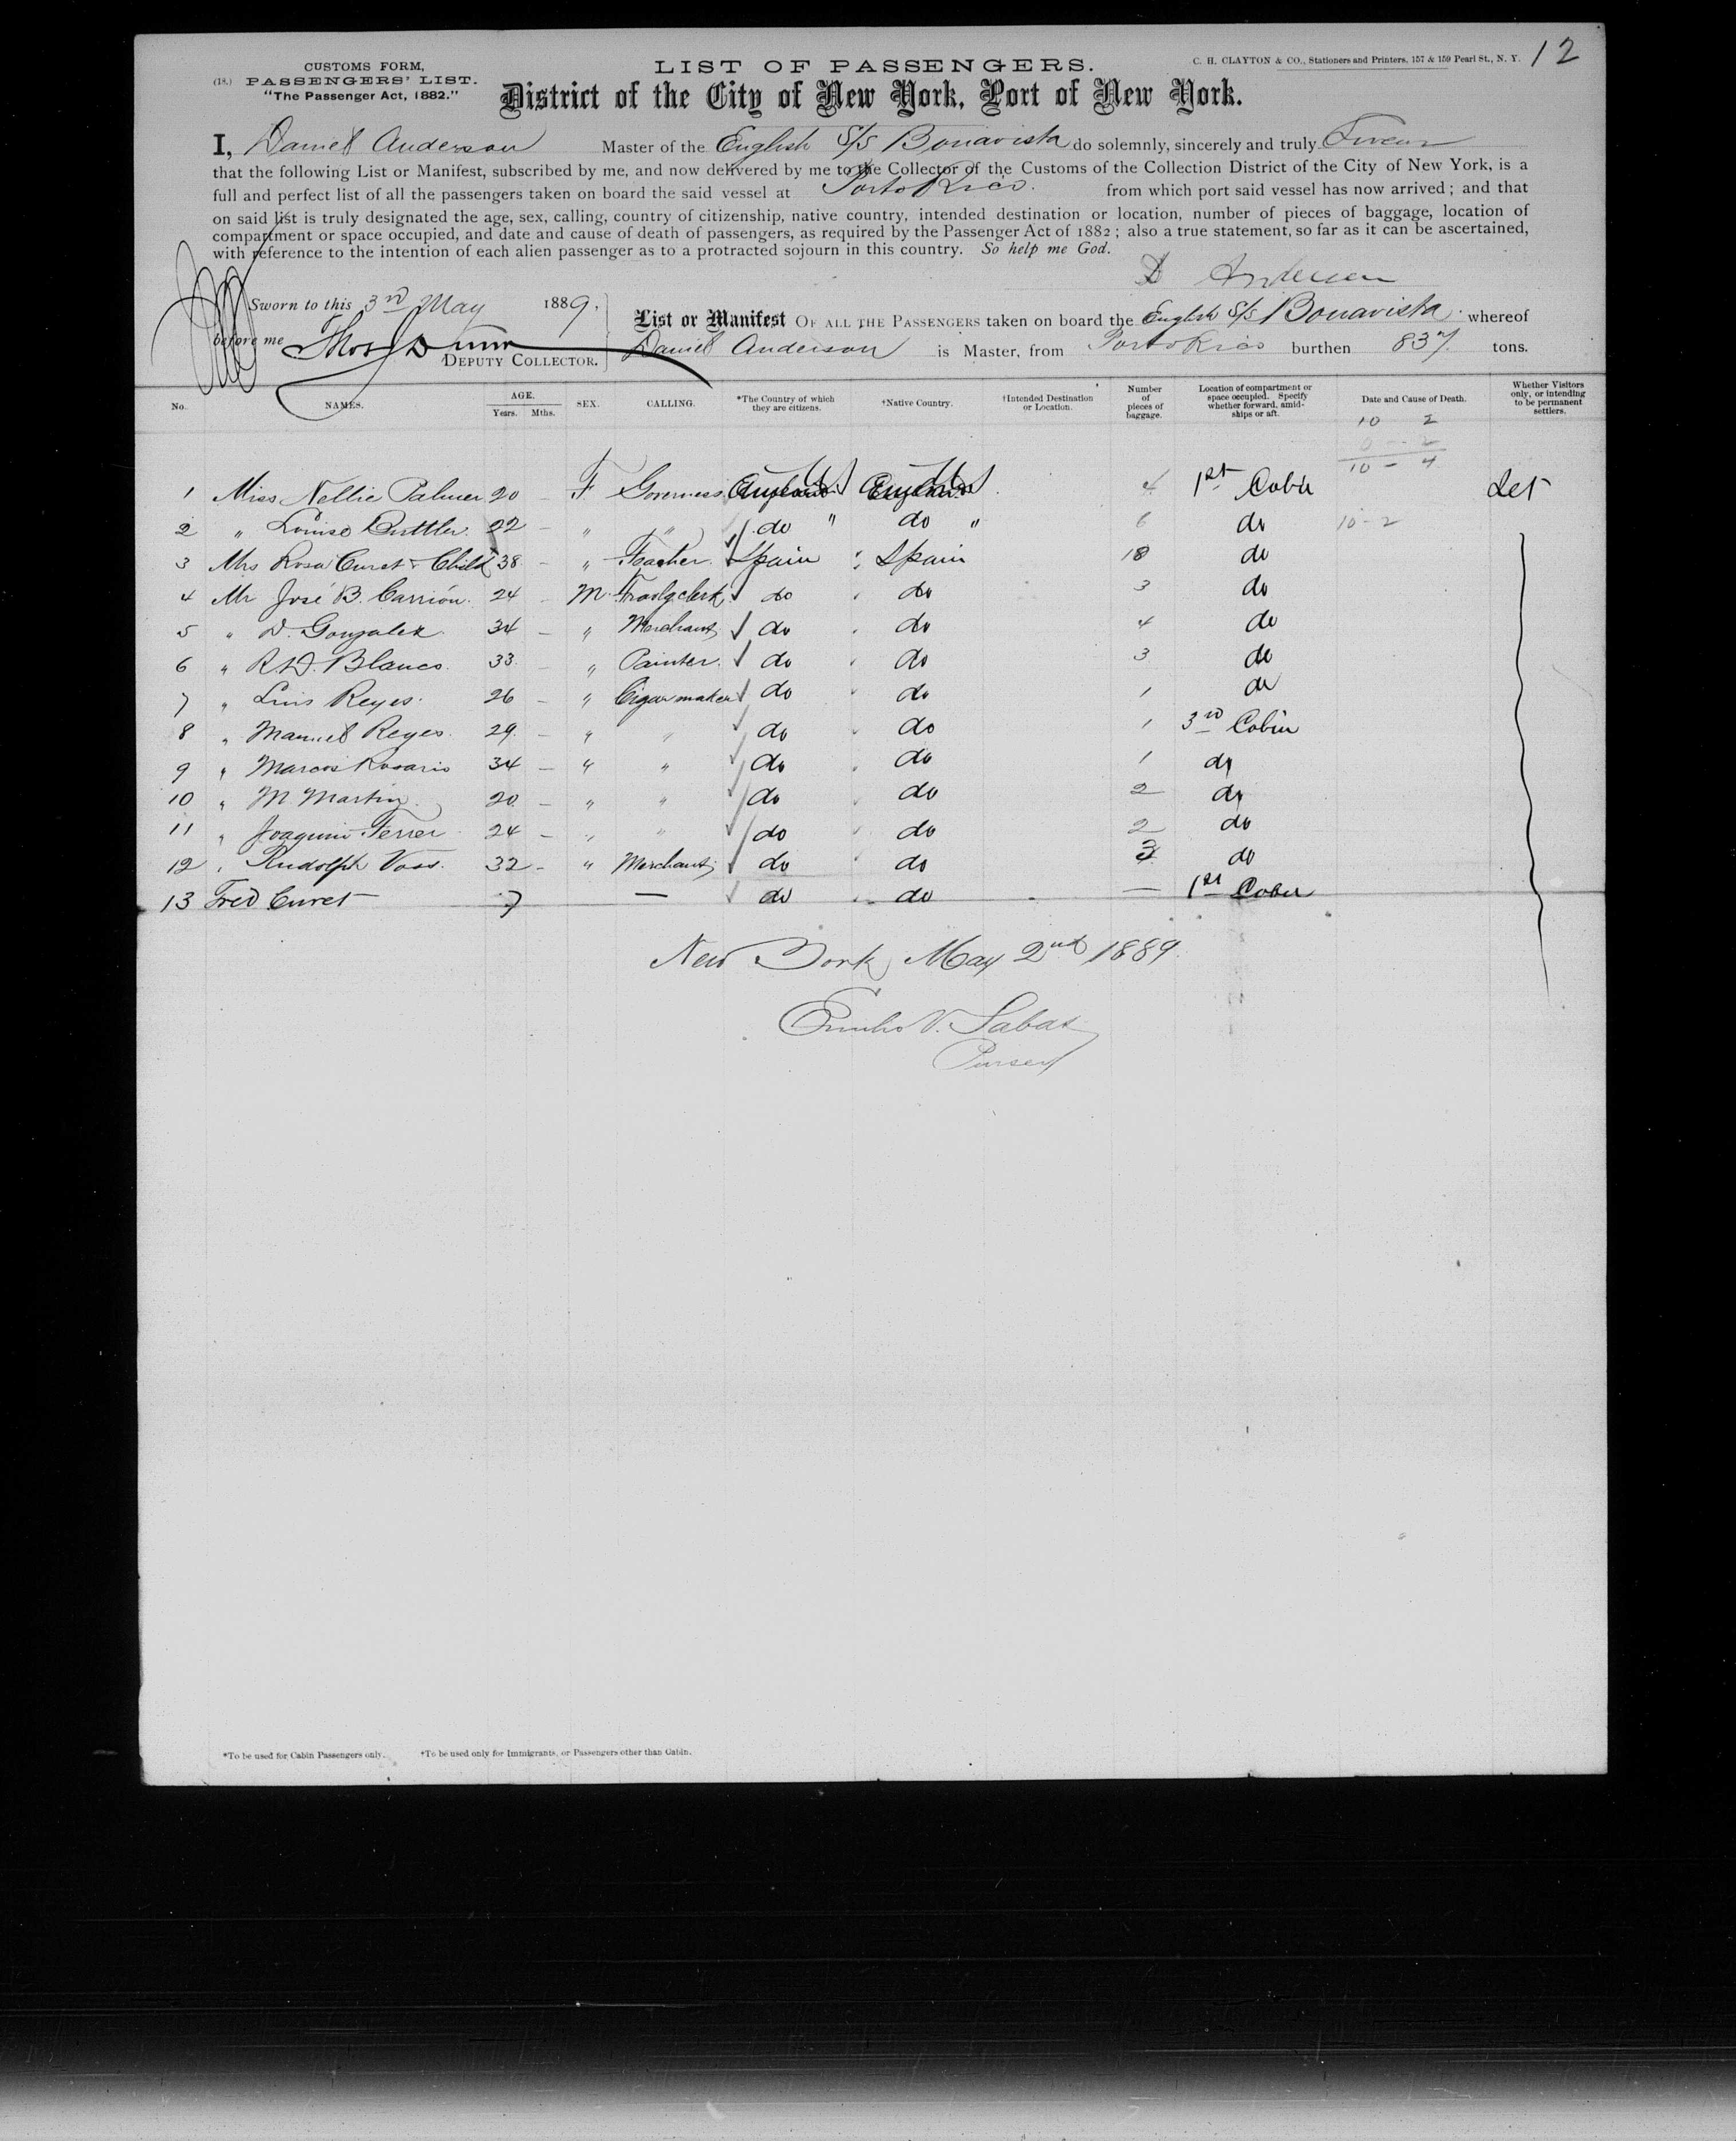 12
CUSTOMS FORM,
(18.) PASSENGERS' LIST.
"The Passenger Act, 1882."
LIST OF PASSENGERS.
C. H. CLAYTON & CO., Stationers and Printers, 157 & 159 Pearl St., N. Y.
District of the City of New York, Port of New York.
I, Daniel Anderson Master of the English S/S Bonavista do solemnly, sincerely and truly Swear
that the following List or Manifest, subscribed by me, and now delivered by me to the Collector of the Customs of the Collection District of the City of New York, is a
full and perfect list of all the passengers taken on board the said vessel at Porto Rico. from which port said vessel has now arrived; and that
on said list is truly designated the age, sex, calling, country of citizenship, native country, intended destination or location, number of pieces of baggage, location of
compartment or space occupied, and date and cause of death of passengers, as required by the Passenger Act of 1882; also a true statement, so far as it can be ascertained,
with reference to the intention of each alien passenger as to a protracted sojourn in this country. So help me God.
D Anderson
Sworn to this 3rd May 1889,
before me Thos Dunn
DEPUTY COLLECTOR.
List or Manifest OF ALL THE PASSENGERS taken on board the English S/S Bonavista whereof
Daniel Anderson is Master, from Porto Rico burthen 837 tons.
No. NAMES. AGE. Years. Mths. SEX. CALLING. *The Country of which they are citizens. †Native Country. †Intended Destination or Location. Number of pieces of baggage. Location of compartment or space occupied. Specify whether forward, amidships or aft. Date and Cause of Death. Whether Visitors only, or intending to be permanent settlers.
10 2
0 - 2
10 - 4
1 Miss Nellie Palmer 20 - F Governess England US England US 4 1st Cabin Set
2 " Louise Buttler 22 - " " do " do " 6 do 10-2
3 Mrs Rosa Curet & Child 38 - " Teacher Spain Spain 18 do
4 Mr José B. Carrión 24 - M Travlg clerk do do 3 do
5 " D. Gonzalez 34 - " Merchant do do 4 do
6 " Blanco. 33 - " Painter. do do 3 do
7 " Luis Reyes. 26 - " Cigar maker do do 1 do
8 " Manuel Reyes. 29 - " " do do 1 3rd Cabin
9 " Marcos Rosario 34 - " " do do 1 do
10 " M. Martin 20 - " " do do 2 do
11 " Joaquin Ferrer 24 - " " do do 2 do
12 " Rudolph Voss. 32 - " Merchant do do 3 do
13 Fred Curet 7 — do do — 1st Cabin
New York May 2nd 1889.
Emilio V. Sabat
Purser
*To be used for Cabin Passengers only. †To be used only for Immigrants, or Passengers other than Cabin.